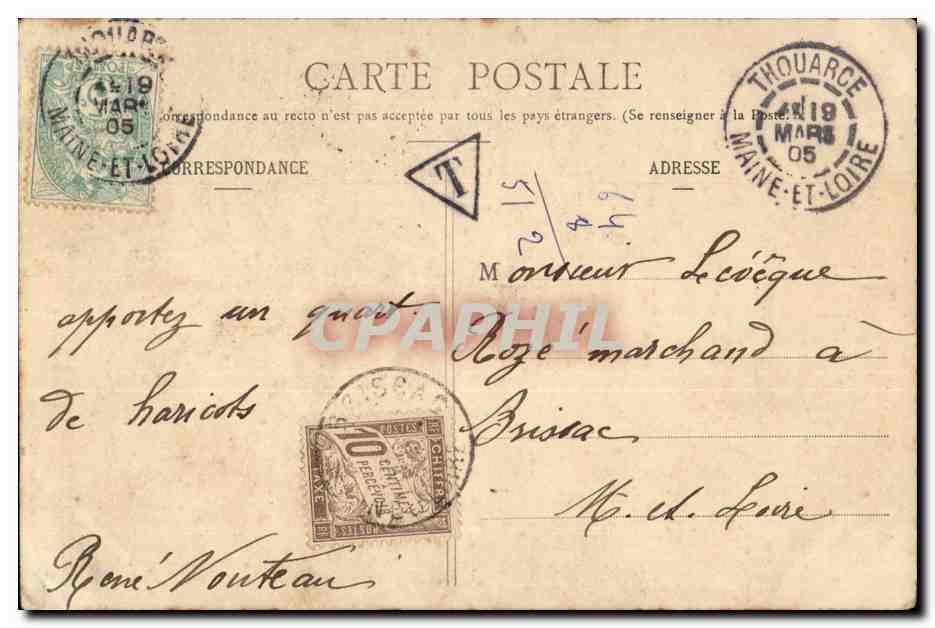 CARTE POSTALE
correspondance au recto n'est pas acceptée par tous les pays étrangers. (Se renseigner à la Poste.)
CORRESPONDANCE
ADRESSE
T
THOUARCE
19
MARS
05
MAINE-ET-LOIRE
19
MARS
05
MAINE-ET-LOIRE
64
8
51/2
Monsieur Levêque
Rozé marchand à
Brissac
M. et. Loire
apportez un quart
de haricots
René Nouteau
BRISSAC
POSTES
CHIFFRE
10
CENTIMES
À PERCEVOIR
TAXE
CPAPHIL